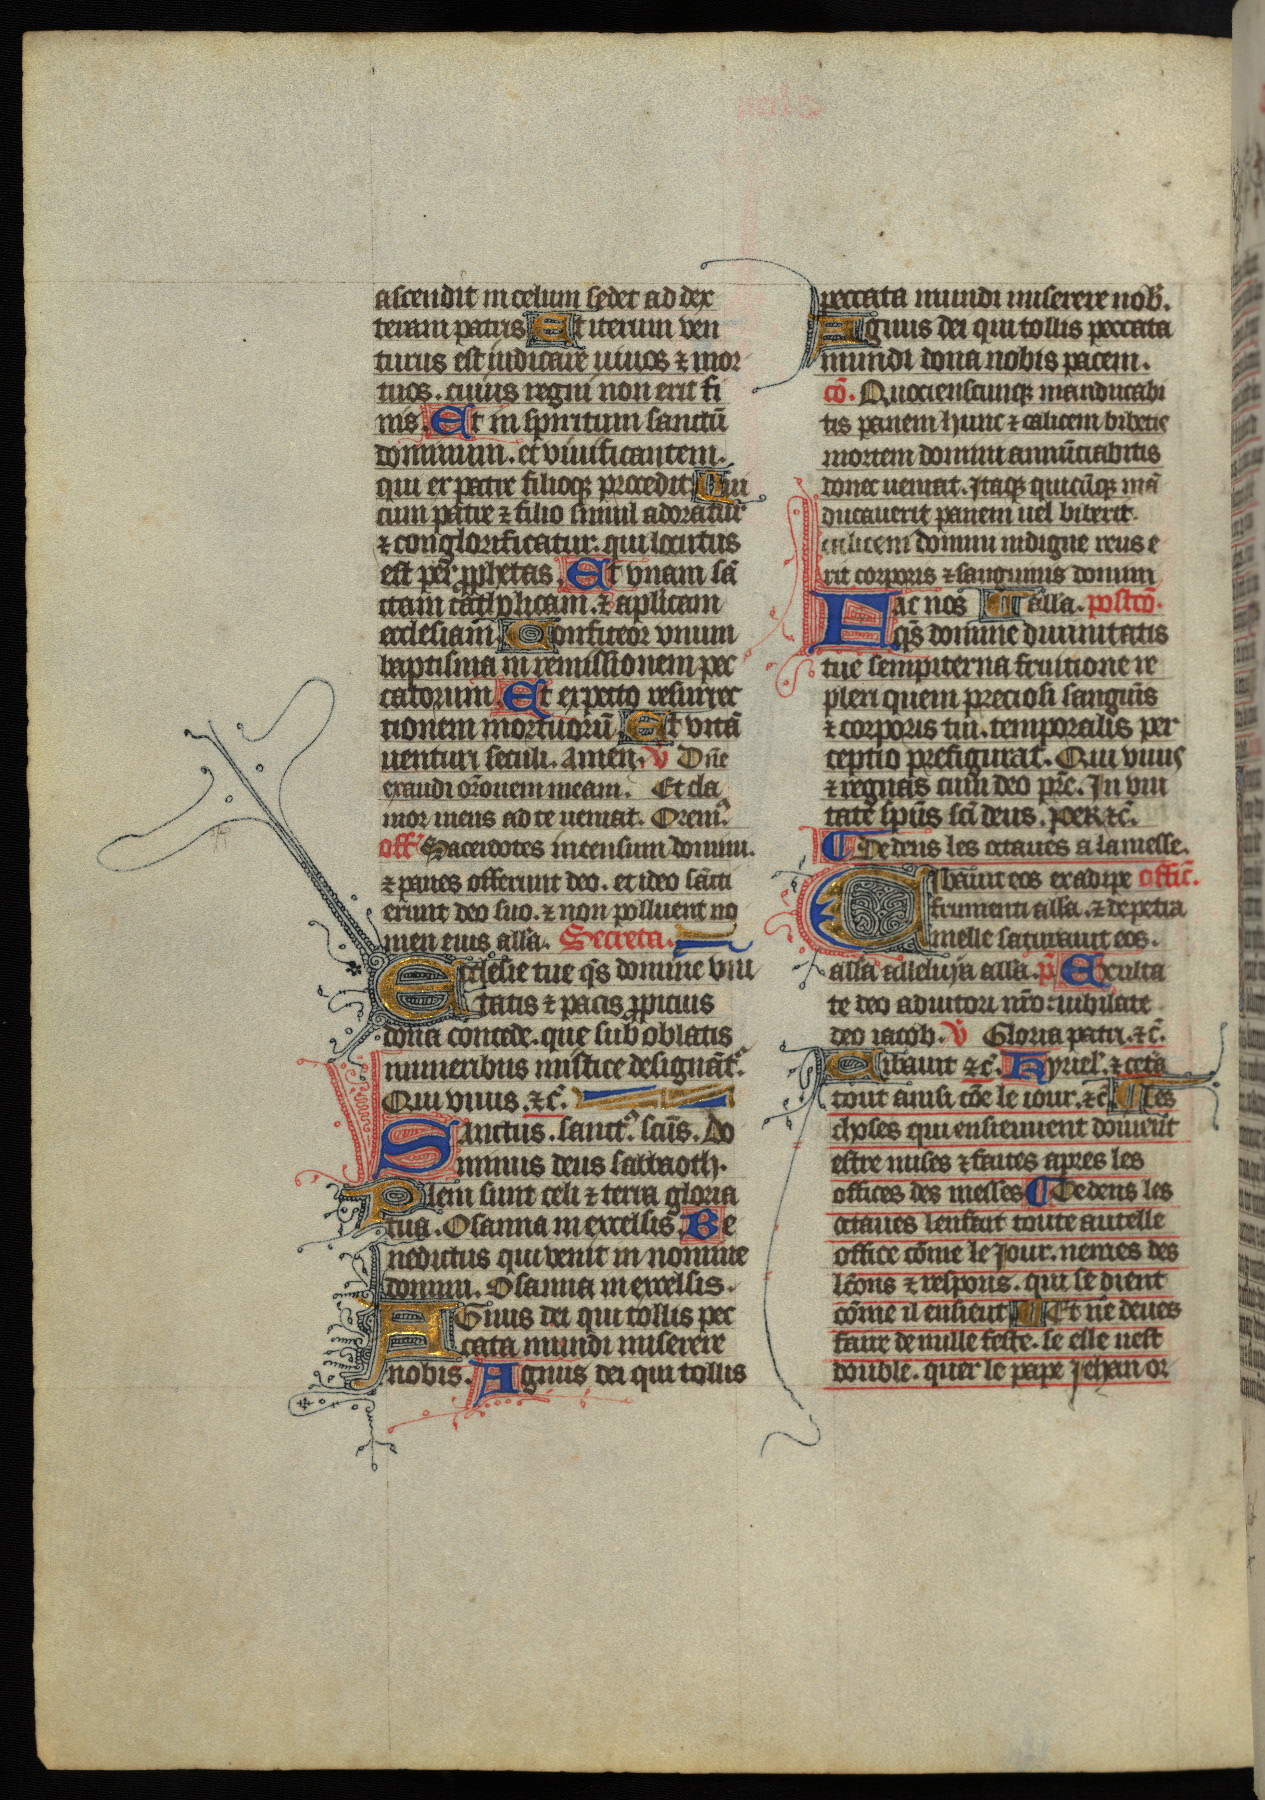 ascendit in celum sedet ad dex
teram patris Et iterum ven
turus est iudicare uiuos ⁊ mor
tuos. cuius regni non erit fi
nis. Et in spiritum sanctū
dominum. et viuificantem.
qui ex patre filioqꝫ procedit Qui
cum patre ⁊ filio simul adoratur
⁊ conglorificatur. qui locutus
est per ꝓphetas. Et vnam sā
ctam catholicam. ⁊ aplicam
ecclesiam Confiteor vnum
baptisma in remissionem pec
catorum. Et expecto resurrec
tionem mortuorū Et vitā
uenturi seculi. Amen. v̄ Dn̄e
exaudi orōnem meam. Et cla
mor meus ad te ueniat. Orem᾽
off᾽ Sacerdotes incensum domini.
⁊ panes offerunt deo. et ideo sācti
erunt deo suo. ⁊ non polluent no
men eius all̄a. Secreta.
Ecclesie tue q̄s domine vni
tatis ⁊ pacis ꝓpicius
dona concede. que sub oblatis
muneribus mistice designāt᾽.
Qui viuis. ⁊c̄.
Sanctus. sanct᾽. sc̄us. Do
minus deus sabbaoth.
Pleni sunt celi ⁊ terra gloria
tua. Osanna in excelsis. Be
nedictus qui venit in nomine
domini. Osanna in excelsis.
Agnus dei qui tollis pec
cata mundi miserere
nobis. Agnus dei qui tollis
peccata mundi miserere nob̄.
Agnus dei qui tollis peccata
mundi dona nobis pacem.
cō. Quocienscunqꝫ manducabi
tis panem hunc ⁊ calicem bibetis
mortem domini annūciabitis
donec ueniat. Itaqꝫ quicūqꝫ mā
ducauerit panem uel biberit
calicem domini indigne reus e
rit corporis ⁊ sanguinis domini
Fac nos all̄a. postcō.
q̄s domine diuinitatis
tue sempiterna fruitione re
pleri quem preciosi sanguīs
⁊ corporis tui. temporalis per
ceptio prefigurat. Qui viuis
⁊ regnas cum deo pr̄e. In vni
tate sp̄us sc̄i deus. per ⁊c̄.
Dedens les octaues a la messe.
Cibauit eos ex adipe offic̄.
frumenti all̄a. ⁊ de petra
melle saturauit eos.
all̄a alleluya all̄a. p̄ Exulta
te deo adiutori nr̄o: iubilate
deo iacob. v̄ Gloria patri. ⁊c̄.
Cibauit ⁊c̄. Kyriel᾽. ⁊ cetā
tout ainsi cōe le iour. ⁊c̄ Les
choses qui ensieuuent doiuēt
estre mises ⁊ faites apres les
offices des messes Dedens les
octaues len fait toute autelle
office cōme le Jour. nemes des
lc̄ons ⁊ respons. qui se dient
cōme il ensieut Et ne deues
faire de nulle feste. se elle nest
double. quer le pape Jehan or